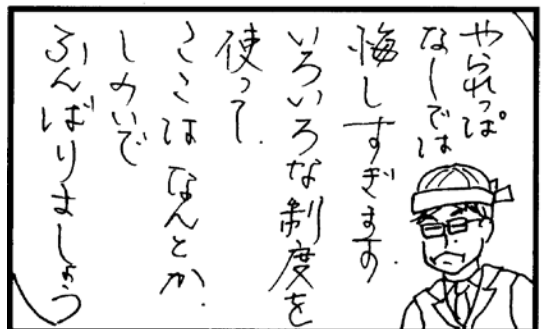 やられっぱ
なしでは
悔しすぎます.
いろいろな制度を
使って.
ここはなんとか.
しのいで
ふんばりましょう